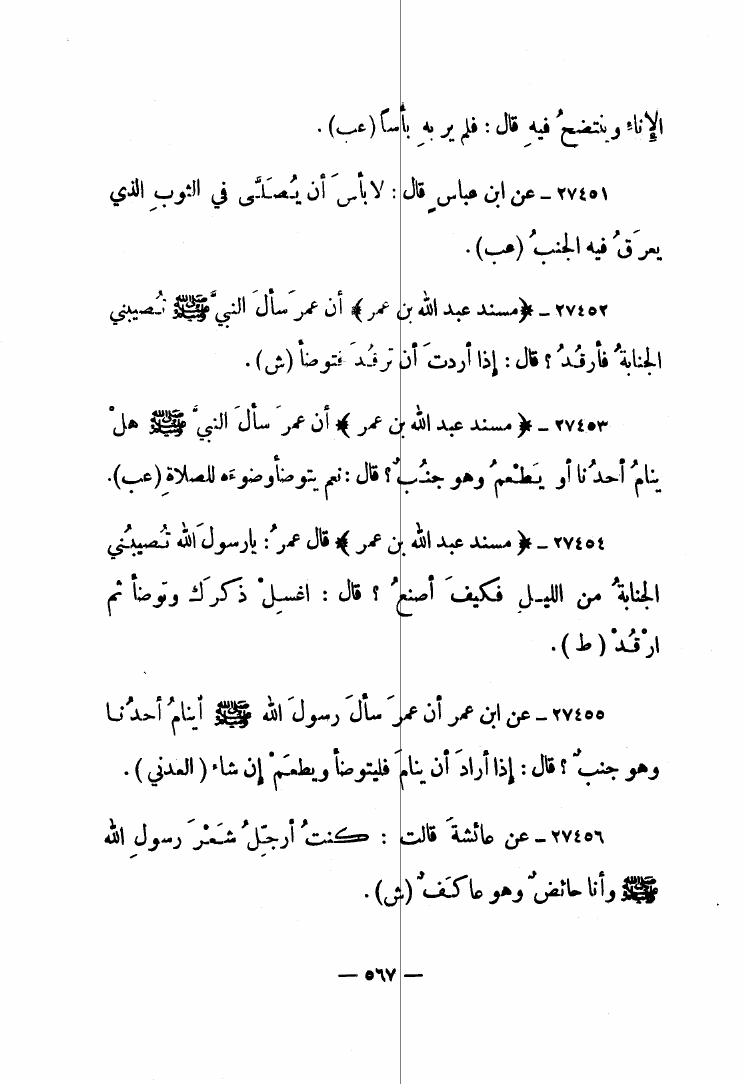 الإناء وينتضحُ فيهِ قال : فلم ير بهِ بأساً (عب) .
٢٧٤٥١ ـ عن ابن عباسٍ قال : لا بأسَ أن يُصَلَّى في الثوبِ الذي
يعرَقُ فيه الجنبُ (عب) .
٢٧٤٥٢ ـ ﴿مسند عبد الله بن عمر﴾ أن عمرَ سألَ النبيَّ ﷺ تُصيبني
الجنابةُ فأرقُدُ ؟ قال : إذا أردتَ أن ترقُدَ فتوضأ (ش) .
٢٧٤٥٣ ـ ﴿ مسند عبد الله بن عمر ﴾ أن عمرَ سألَ النبيَّ ﷺ هلْ
ينامُ أحدُنا أو يَطْعمُ وهو جنُبٌ ؟ قال : نعم يتوضأ وضوءَه للصلاةِ (عب) .
٢٧٤٥٤ ـ ﴿ مسند عبد الله بن عمر ﴾ قال عمرُ : يارسولَ الله تُصيبُني
الجنابةُ من الليلِ فكيفَ أصنعُ ؟ قال : اغسلْ ذكرَك وتوضأ ثم
ارْقُدْ ( ط ) .
٢٧٤٥٥ ـ عن ابن عمر أن عمرَ سألَ رسولَ الله ﷺ أينامُ أحدُنا
وهو جنبٌ ؟ قال : إذا أرادَ أن ينامَ فليتوضأ ويطعَمْ إن شاء ( العدني ) .
٢٧٤٥٦ ـ عن عائشةَ قالت : كنتُ أرجِّلُ شَعْرَ رسولِ الله
ﷺ وأنا حائضٌ وهو عاكفٌ (ش) .
— ٥٦٧ —